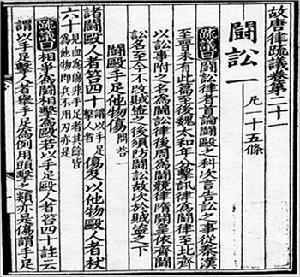 故唐律疏議卷第二十一
鬭訟一 凡一十五條
疏議曰鬭訟律者首論鬭毆之科次言告訟之事從秦漢
至晉未有此篇至後魏太和年分擊訊律為鬭律至北齊
以訟事附之名為鬭訟律後周為鬭競律隋開皇依齊鬭
訟名至今不改賊盜之後須防鬭訟故次於賊盜之下
鬭毆手足他物傷 問荅一
諸鬭毆人者笞四十謂以手足擊人者傷及以他物毆人者杖
六十見血為傷非手足者其餘皆為他物即兵不用刃亦是
疏議曰相爭為鬭相擊為毆若以手足毆人者笞四十註云
謂以手足擊人者舉手足為例用頭擊之類亦是傷謂手足